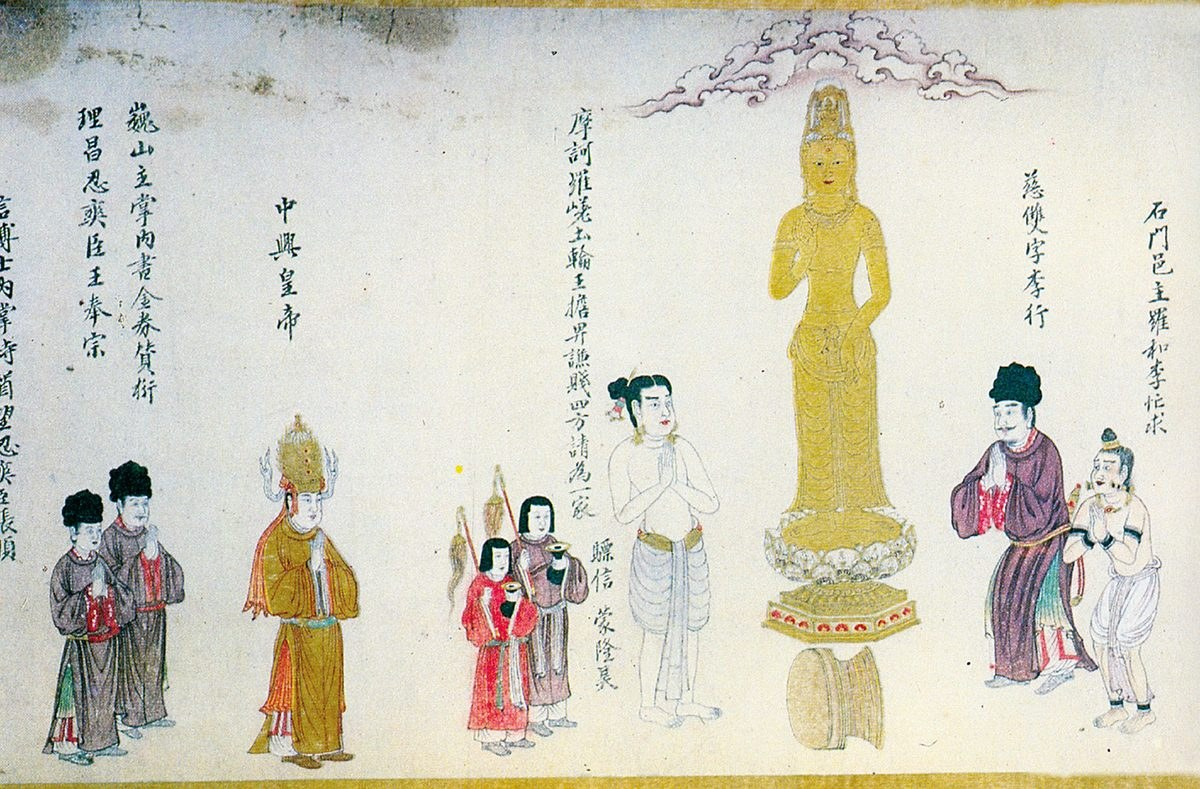 石門邑主羅和李忙求
慈雙字李行
摩訶羅嵯土輪王擔畀謙賤四方請為一家
驃信蒙隆昊
中興皇帝
巍山主掌內書金券贊衛
理昌忍爽臣王奉宗
信博士內掌侍酋望忍爽臣張順